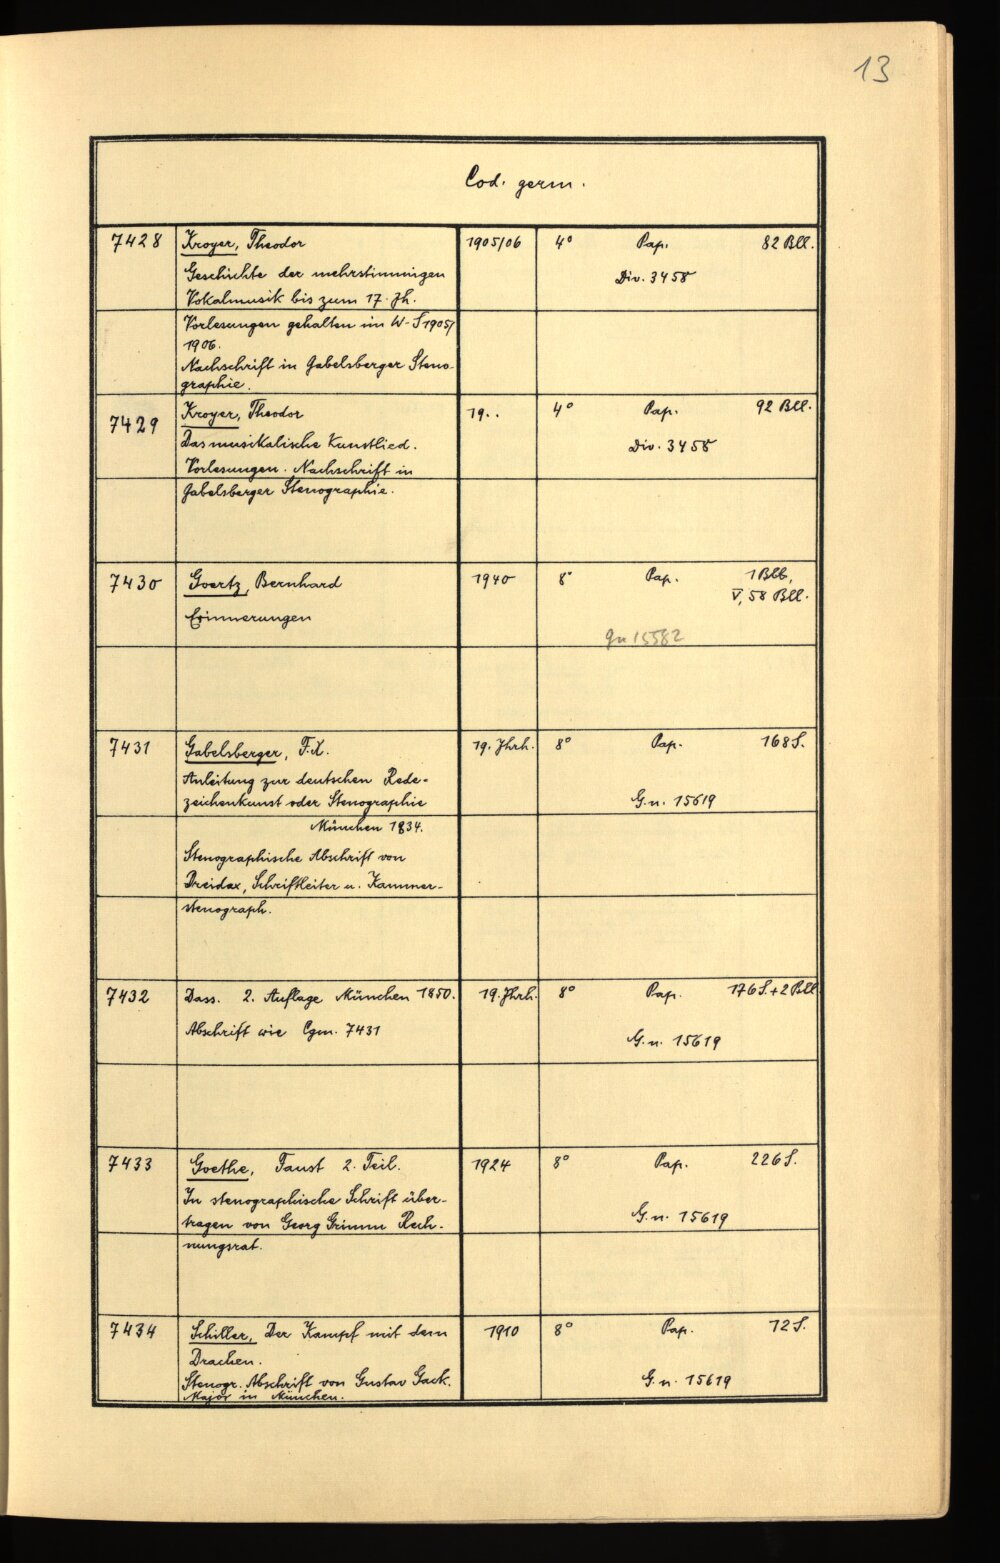 13
Cod. germ.
7428 Kroyer, Theodor 1905/06 4° Pap. 82 Bll.
Geschichte der mehrstimmigen Div. 3458
Vokalmusik bis zum 17. Jh.
Vorlesungen gehalten im W-S 1905/
1906.
Nachschrift in Gabelsberger Steno-
graphie.
7429 Kroyer, Theodor 19.. 4° Pap. 92 Bll.
Das musikalische Kunstlied. Div. 3458
Vorlesungen. Nachschrift in
Gabelsberger Stenographie.
7430 Goertz, Bernhard 1940 8° Pap. 1 Blb,
V, 58 Bll.
Erinnerungen
Gn 15582
7431 Gabelsberger, F.X. 19. Jhrh. 8° Pap. 168 S.
Anleitung zur deutschen Rede-
zeichenkunst oder Stenographie G.n. 15619
München 1834.
Stenographische Abschrift von
Dreidax, Schriftleiter u. Kammer-
stenograph.
7432 Dass. 2. Auflage München 1850. 19. Jhrh. 8° Pap. 176 S. + 2 Bll
Abschrift wie Cgm. 7431 G.n. 15619
7433 Goethe, Faust 2. Teil. 1924 8° Pap. 226 S.
In stenographische Schrift über-
tragen von Georg Grimm Rech- G.n. 15619
nungsrat.
7434 Schiller, Der Kampf mit dem 1910 8° Pap. 12 S.
Drachen.
Stenogr. Abschrift von Gustav Gack. G.n. 15619
Major in München.